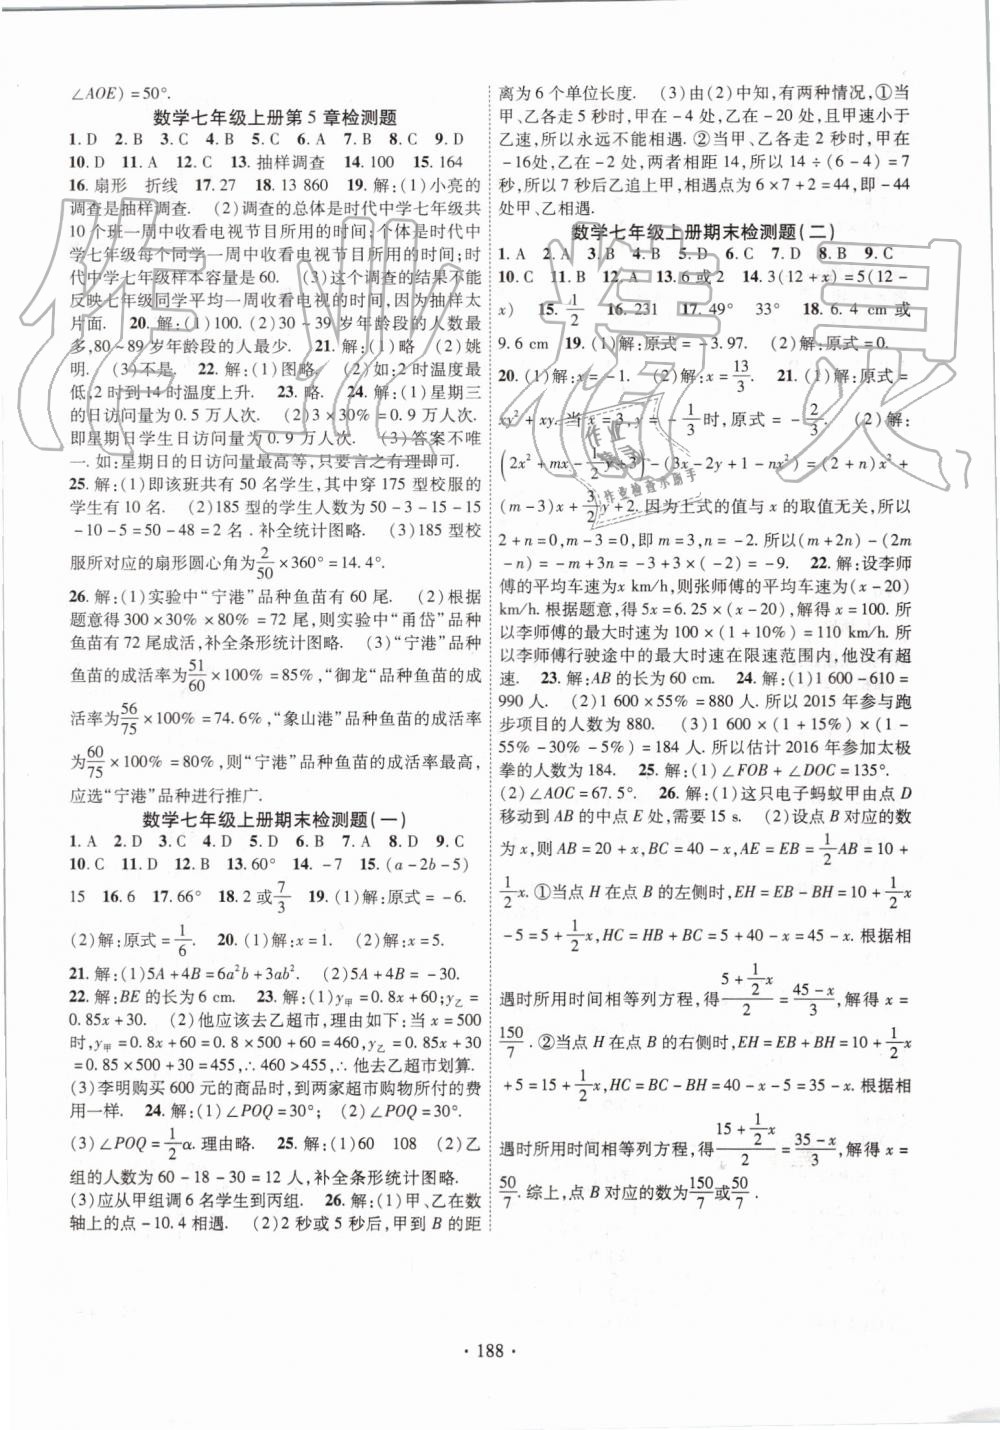 ∠AOE)=50°.
数学七年级上册第5章检测题
1. D 2. B 3. C 4. B 5. C 6. A 7. B 8. C 9. D
10. D 11. A 12. C 13. 抽样调查 14. 100 15. 164
16. 扇形 折线 17. 27 18. 13 860 19. 解:(1)小亮的
调查是抽样调查. (2)调查的总体是时代中学七年级共
10个班一周中收看电视节目所用的时间;个体是时代中
学七年级每个同学一周中收看电视节目所用的时间;时
代中学七年级样本容量是60. (3)这个调查的结果不能
反映七年级同学平均一周收看电视的时间,因为抽样太
片面. 20. 解:(1)100. (2)30~39岁年龄段的人数最
多,80~89岁年龄段的人最少. 21. 解:(1)略 (2)姚
明. (3)不是. 22. 解:(1)图略. (2)如:2时温度最
低,2时到14时温度上升. 23. 略 24. 解:(1)星期三
的日访问量为0.5万人次. (2)3×30%=0.9万人次.
即星期日学生日访问量为0.9万人次. (3)答案不唯
一.如:星期日的日访问量最高等,只要言之有理即可.
25. 解:(1)即该班共有50名学生,其中穿175型校服的
学生有10名. (2)185型的学生人数为50-3-15-15
-10-5=50-48=2名.补全统计图略. (3)185型校
服所对应的扇形圆心角为2/50×360°=14.4°.
26. 解:(1)实验中“宁港”品种鱼苗有60尾. (2)根据
题意得300×30%×80%=72尾,则实验中“甬岱”品种
鱼苗有72尾成活,补全条形统计图略. (3)“宁港”品种
鱼苗的成活率51/60×100%=85%,“御龙”品种鱼苗的成
活率为56/75×100%=74.6%,“象山港”品种鱼苗的成活率
为60/75×100%=80%,则“宁港”品种鱼苗的成活率最高,
应选“宁港”品种进行推广.
数学七年级上册期末检测题(一)
1. A 2. D 3. C 4. D 5. D 6. B 7. B 8. D 9. C
10. C 11. D 12. B 13. 60° 14. -7 15. (a-2b-5)
15 16. 6 17. 66° 18. 2或7/3 19. (1)解:原式=-6.
(2)解:原式=1/6. 20. (1)解:x=1. (2)解:x=5.
21. 解:(1)5A+4B=6a²b+3ab². (2)5A+4B=-30.
22. 解:BE的长为6 cm. 23. 解:(1)y甲=0.8x+60;y乙=
0.85x+30. (2)他应该去乙超市,理由如下:当x=500
时,y甲=0.8x+60=0.8×500+60=460,y乙=0.85x+30
=0.85×500+30=455,∴460>455,∴他去乙超市划算.
(3)李明购买600元的商品时,到两家超市购物所付的费
用一样. 24. 解:(1)∠POQ=30°; (2)∠POQ=30°.
(3)∠POQ=1/2α.理由略. 25. 解:(1)60 108 (2)乙
组的人数为60-18-30=12人,补全条形统计图略.
(3)应从甲组调6名学生到丙组. 26. 解:(1)甲、乙在数
轴上的点-10.4相遇. (2)2秒或5秒后,甲到B的距
离为6个单位长度. (3)由(2)中知,有两种情况,①当
甲、乙各走5秒时,甲在-4处,乙在-14处,甲速小于
乙速,所以永远不能相遇. ②当甲、乙各走2秒时,甲在
-16处,乙在-2处,两者相距14,所以14÷(6-4)=7
秒,所以7秒后乙追上甲,相遇点为6×7+2=44,即-44
处甲、乙相遇.
数学七年级上册期末检测题(二)
1. A 2. A 3. B 4. B 5. D 6. C 7. D 8. B 9. C
10. C 11. B 12. A 13. 6或2 14. 3(12+x)=5(12-
x) 15. 1/2 16. 231 17. 49° 33° 18. 6.4 cm或
9.6 cm 19. (1)解:原式=-3.97. (2)解:原式=0.
20. (1)解:x=-1. (2)解:x=13/3. 21. (1)解:原式=
xy²+xy.当x=3,y=-1/3时,原式=-2/3. (2)解:
(2x²+mx-1/2y+3)-(3x-2y+1-nx²)=(2+n)x²+
(m-3)x+3/2y+2.因为上式的值与x的取值无关,所以
2+n=0,m-3=0,即m=3,n=-2.所以(m+2n)-(2m
-n)=-m+3n=-3+3×(-2)=-9. 22. 解:设李师
傅的平均车速为x km/h,则张师傅的平均车速为(x-20)
km/h.根据题意,得5x=6.25×(x-20),解得x=100.所
以李师傅的最大时速为100×(1+10%)=110 km/h.所
以李师傅行驶途中的最大时速在限速范围内,他没有超
速. 23. 解:AB的长为60 cm. 24. 解:(1)1 600-610=
990人. (2)1 600×55%=880人.所以2015年参与跑
步项目的人数为880. (3)1 600×(1+15%)×(1-
55%-30%-5%)=184人.所以估计2016年参加太极
拳的人数为184. 25. 解:(1)∠FOB+∠DOC=135°.
(2)∠AOC=67.5°. 26. 解:(1)这只电子蚂蚁甲由点D
移动到AB的中点E处,需要15 s. (2)设点B对应的数
为x,则AB=20+x,BC=40-x,AE=EB=1/2AB=10+
1/2x.①当点H在点B的左侧时,EH=EB-BH=10+1/2x
-5=5+1/2x,HC=HB+BC=5+40-x=45-x.根据相
遇时所用时间相等列方程,得(5+1/2x)/2=(45-x)/3,解得x=
150/7. ②当点H在点B的右侧时,EH=EB+BH=10+1/2x
+5=15+1/2x,HC=BC-BH=40-x-5=35-x.根据相
遇时所用时间相等列方程,得(15+1/2x)/2=(35-x)/3,解得x=
50/7.综上,点B对应的数为150/7或50/7.
·188·
作业精灵
作业精灵
作业检查小助手